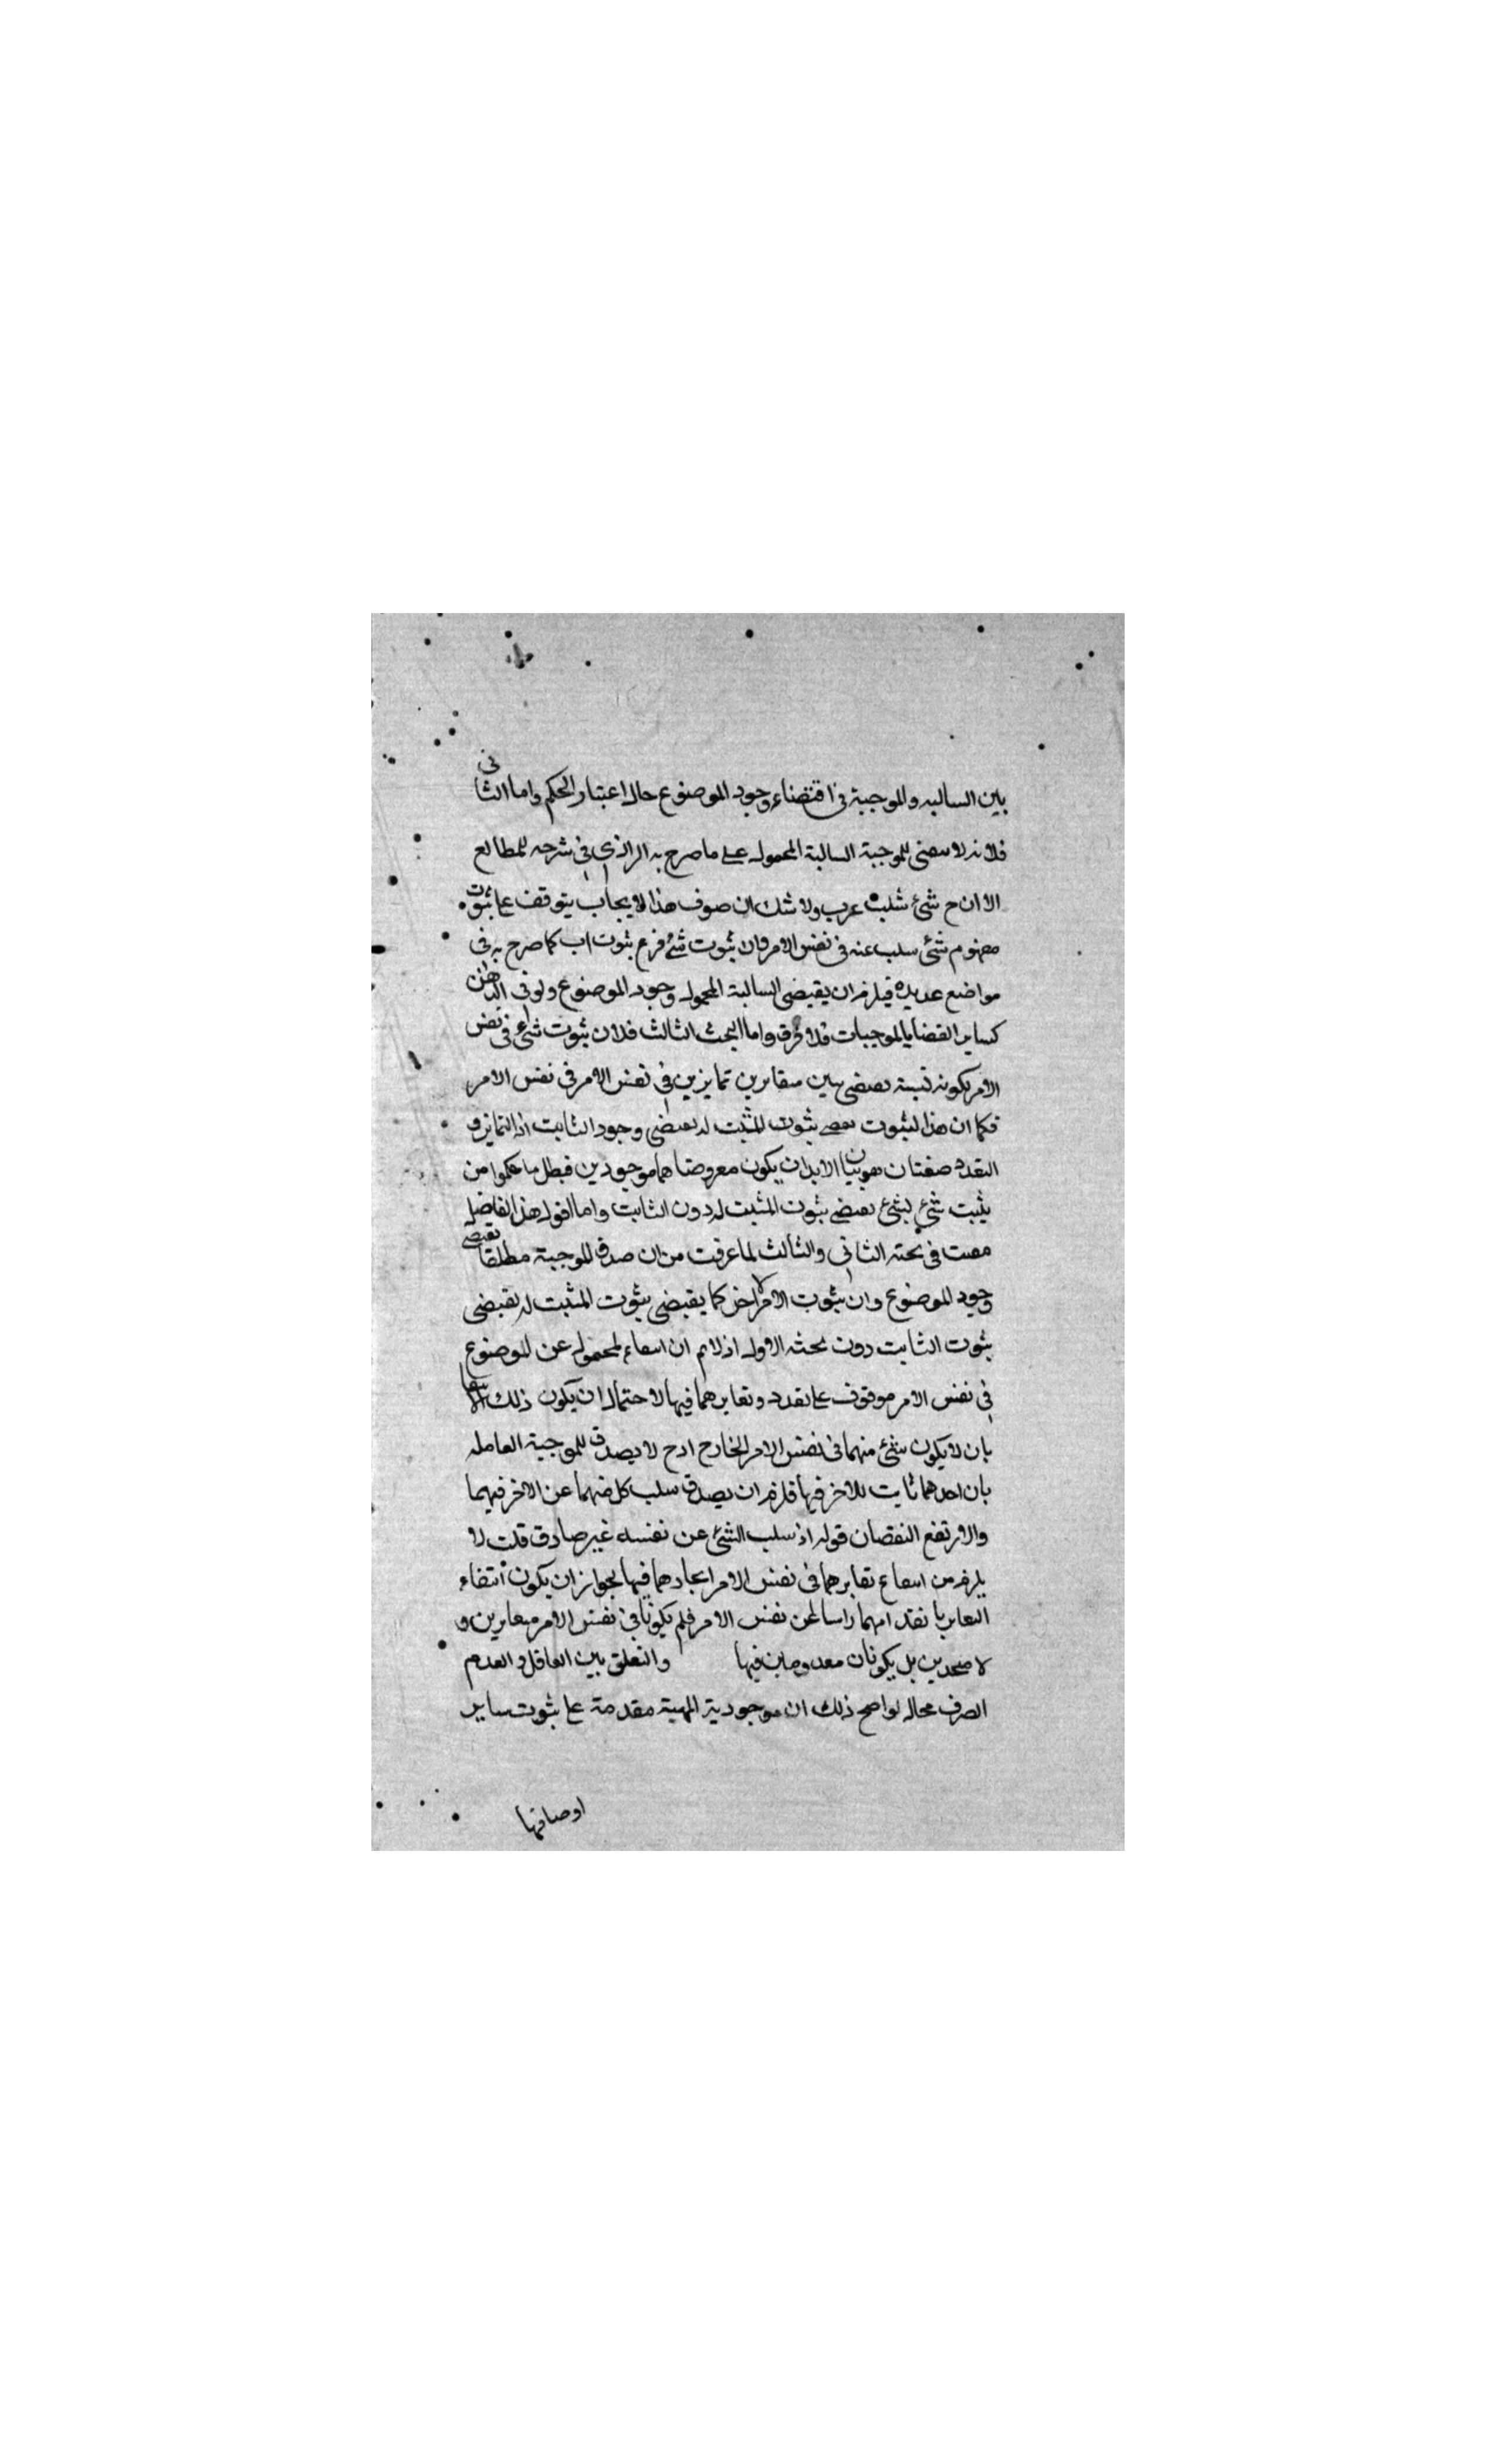 بين السالبه والموجبة في اقتضاء وجود الموضوع حال اعتبار الحكم واما الثانى
فلانه لا معنى للموجبة السالبة المحمول على ما صرح به الرازي في شرحه للمطالع
الا ان ج شئ سلب عن ب ولا شك ان صدق هذا الايجاب يتوقف على ثبوت
مفهوم شئ سلب عنه في نفس الامر فان ثبوت شئ فرع ثبوت اب كما صرح به في
مواضع عديده فيلزم ان يقتضى السالبة المحمول وجود الموضوع ولو في الذهن
كساير القضايا الموجبات فلا فرق واما البحث الثالث فلان ثبوت شئ في نفس
الامر لكونه نسبة يقتضى متمايزين في نفس الامر في نفس الامر
فكما ان هذا الثبوت يقتضى ثبوت المثبت له يقتضى وجود الثابت اذ التمايز و
التعدد صفتان ثبوتيتان لابد ان يكون معروضاهما موجودين فبطل ما حكموا من
يثبت شئ لشئ يقتضى ثبوت المثبت له دون الثابت واما اقول هذا الفاضل
مصيب في بحثه الثاني والثالث لما عرفت من ان صدق الموجبة مطلقا يقتضى
وجود الموضوع وان ثبوت الامر لاخر كما يقتضى ثبوت المثبت له يقتضى
ثبوت الثابت دون بحثه الاول اذ لا نم ان انتفاء المحمول عن الموضوع
في نفس الامر موقوف على تعدد وتغايرهما فيها لاحتمال ان يكون ذلك الانتفاء
بان لا يكون شئ منهما في نفس الامر الخارج اذ ح لا يصدق الموجبة القائله
بان احدهما ثابت للاخر فيها فلزم ان يصدق سلب كل منهما عن الاخر فيهما
والا ارتفع النقضان قوله اذ سلب الشئ عن نفسه غير صادق قلت لا
يلزم من انتفاء تغايرهما في نفس الامر اتحادهما فيها لجواز ان يكون انتفاء
التغاير بانعدامهما راسا عن نفس الامر فلم يكونا في نفس الامر متغايرين و
لا متحدين بل يكونان معدومين فيها والتعلق بين العاقل والعدم
الصرف محال توضيح ذلك ان موجودية المهية مقدمة على ثبوت ساير
اوصافها